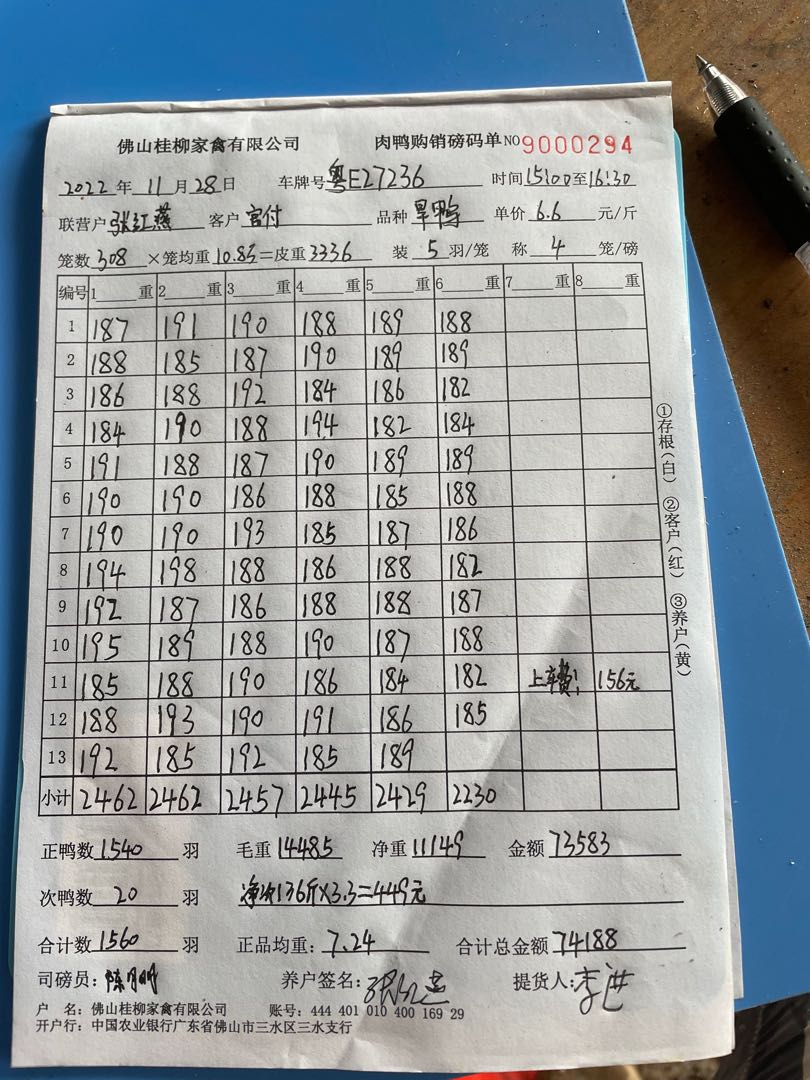 佛山桂柳家禽有限公司 肉鸭购销磅码单 NO 9000294
2022 年 11 月 28 日 车牌号 粤E27236 时间 15:00 至 16:30
联营户 张红燕 客户 宫付 品种 旱鸭 单价 6.6 元/斤
笼数 308 ×笼均重 10.83 =皮重 3336 装 5 羽/笼 称 4 笼/磅
编号 1 重 2 重 3 重 4 重 5 重 6 重 7 重 8 重
1 187 191 190 188 189 188
2 188 185 187 190 189 189
3 186 188 192 184 186 182
4 184 190 188 194 182 184
5 191 188 187 190 189 189
6 190 190 186 188 185 188
7 190 190 193 185 187 186
8 194 198 188 186 188 182
9 192 187 186 188 188 187
10 195 189 188 190 187 188
11 185 188 190 186 184 182 上车费: 156元
12 188 193 190 191 186 185
13 192 185 192 185 189
小计 2462 2462 2457 2445 2429 2230
①存根(白) ②客户(红) ③养户(黄)
正鸭数 1540 羽 毛重 14485 净重 11149 金额 73583
次鸭数 20 羽 净次136斤×3.3=449元
合计数 1560 羽 正品均重: 7.24 合计总金额 74188
司磅员: 养户签名: 张红燕 提货人: 李进
户 名: 佛山桂柳家禽有限公司 账号: 444 401 010 400 169 29
开户行: 中国农业银行广东省佛山市三水区三水支行